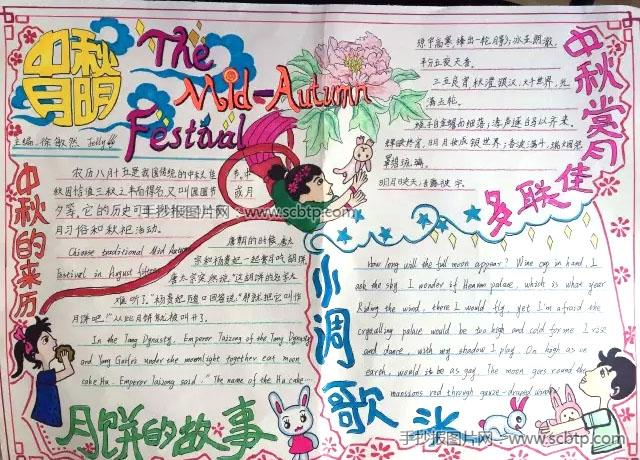 中秋
月明
The
Mid-Autumn
Festival
主编:徐敏然 Jelly
中秋的来历
农历八月十五是我国传统的中秋佳节,中
秋因恰值三秋之半而得名,又叫团圆节或月
夕等,它的历史可
月习俗和秋祀活动。
Chinese traditional Mid Autumn
Festival in August fifteen
唐朝的时候,唐太
宗和杨贵妃一起赏月吃胡饼,
唐太宗突然说:"这胡饼的名字太
难听了。"杨贵妃随口回答说:"那就把它叫作
月饼吧!"从此月饼就被叫开了。
In the Tang Dynasty, Emperor Taizong of the Tang Dynasty
and Yang Guifei under the moonlight together eat moon
cake Hu. Emperor Taizong said, "The name of the Hu cake...
月饼的故事
中秋赏月
多联佳
半分五夜天香。
满五轮。
明月映天;甘露被宇.
小调歌头
How long will the full moon appear? Wine cup in hand, I
ask the sky. I wonder if Heaven palace, which is what year
Riding the wind, there I would fly, yet I'm afraid the
crystalling palace would be too high and cold for me I rise
and dance, with my shadow I play. On high as on
earth, would it be as gay. The moon goes round the
mansions red through gauze-draped windows
手抄报图片网 - www.scbtp.com
手抄报图片网 - www.scbtp.com